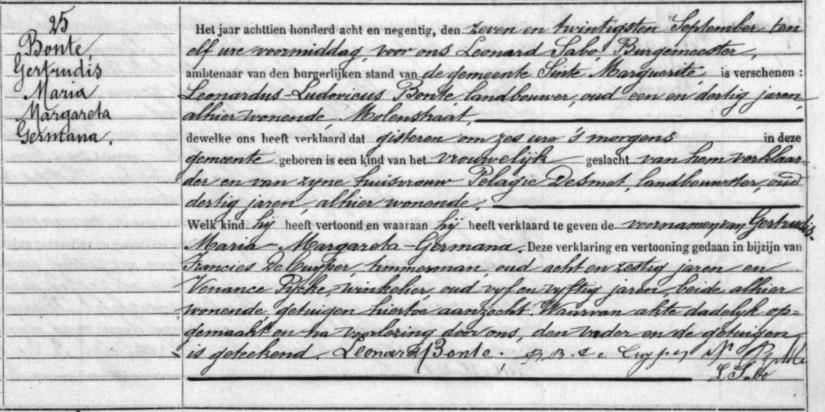 25
Bonte
Gertrudis
Maria
Margareta
Germana.
Het jaar achttien honderd acht en negentig, den zeven en twintigsten September ten
elf ure voormiddag, voor ons Leonard Sabo, Burgemeester,
ambtenaar van den borgerlijken stand van de gemeente Sinte Marguerite, is verschenen :
Leonardus-Ludovicus Bonte landbouwer, oud een en dertig jaren,
alhier wonende, Molenstraat.
dewelke ons heeft verklaard dat gisteren om zes ure 's morgens in deze
gemeente geboren is een kind van het vrouwelijk geslacht van hem verklaar-
der en van zyne huisvrouw Pelagie Desmet, landbouwster, oud
dertig jaren, alhier wonende.
Welk kind hij heeft vertoond en waaraan hij heeft verklaard te geven de voornamen van Gertrudis-
Maria-Margareta-Germana. Deze verklaring en vertooning gedaan in bijzijn van
Francies De Cuyper, timmerman, oud acht en zestig jaren en
Venance winkelier oud vyf en vyftig jaren beide alhier
wonende, getuigen hiertoe aanzocht. Waarvan akte dadelyk op-
gemaakt en na voorlezing door ons, den vader en de getuigen
is geteekend. Leonard Bonte. De Cuyper
L Sabo